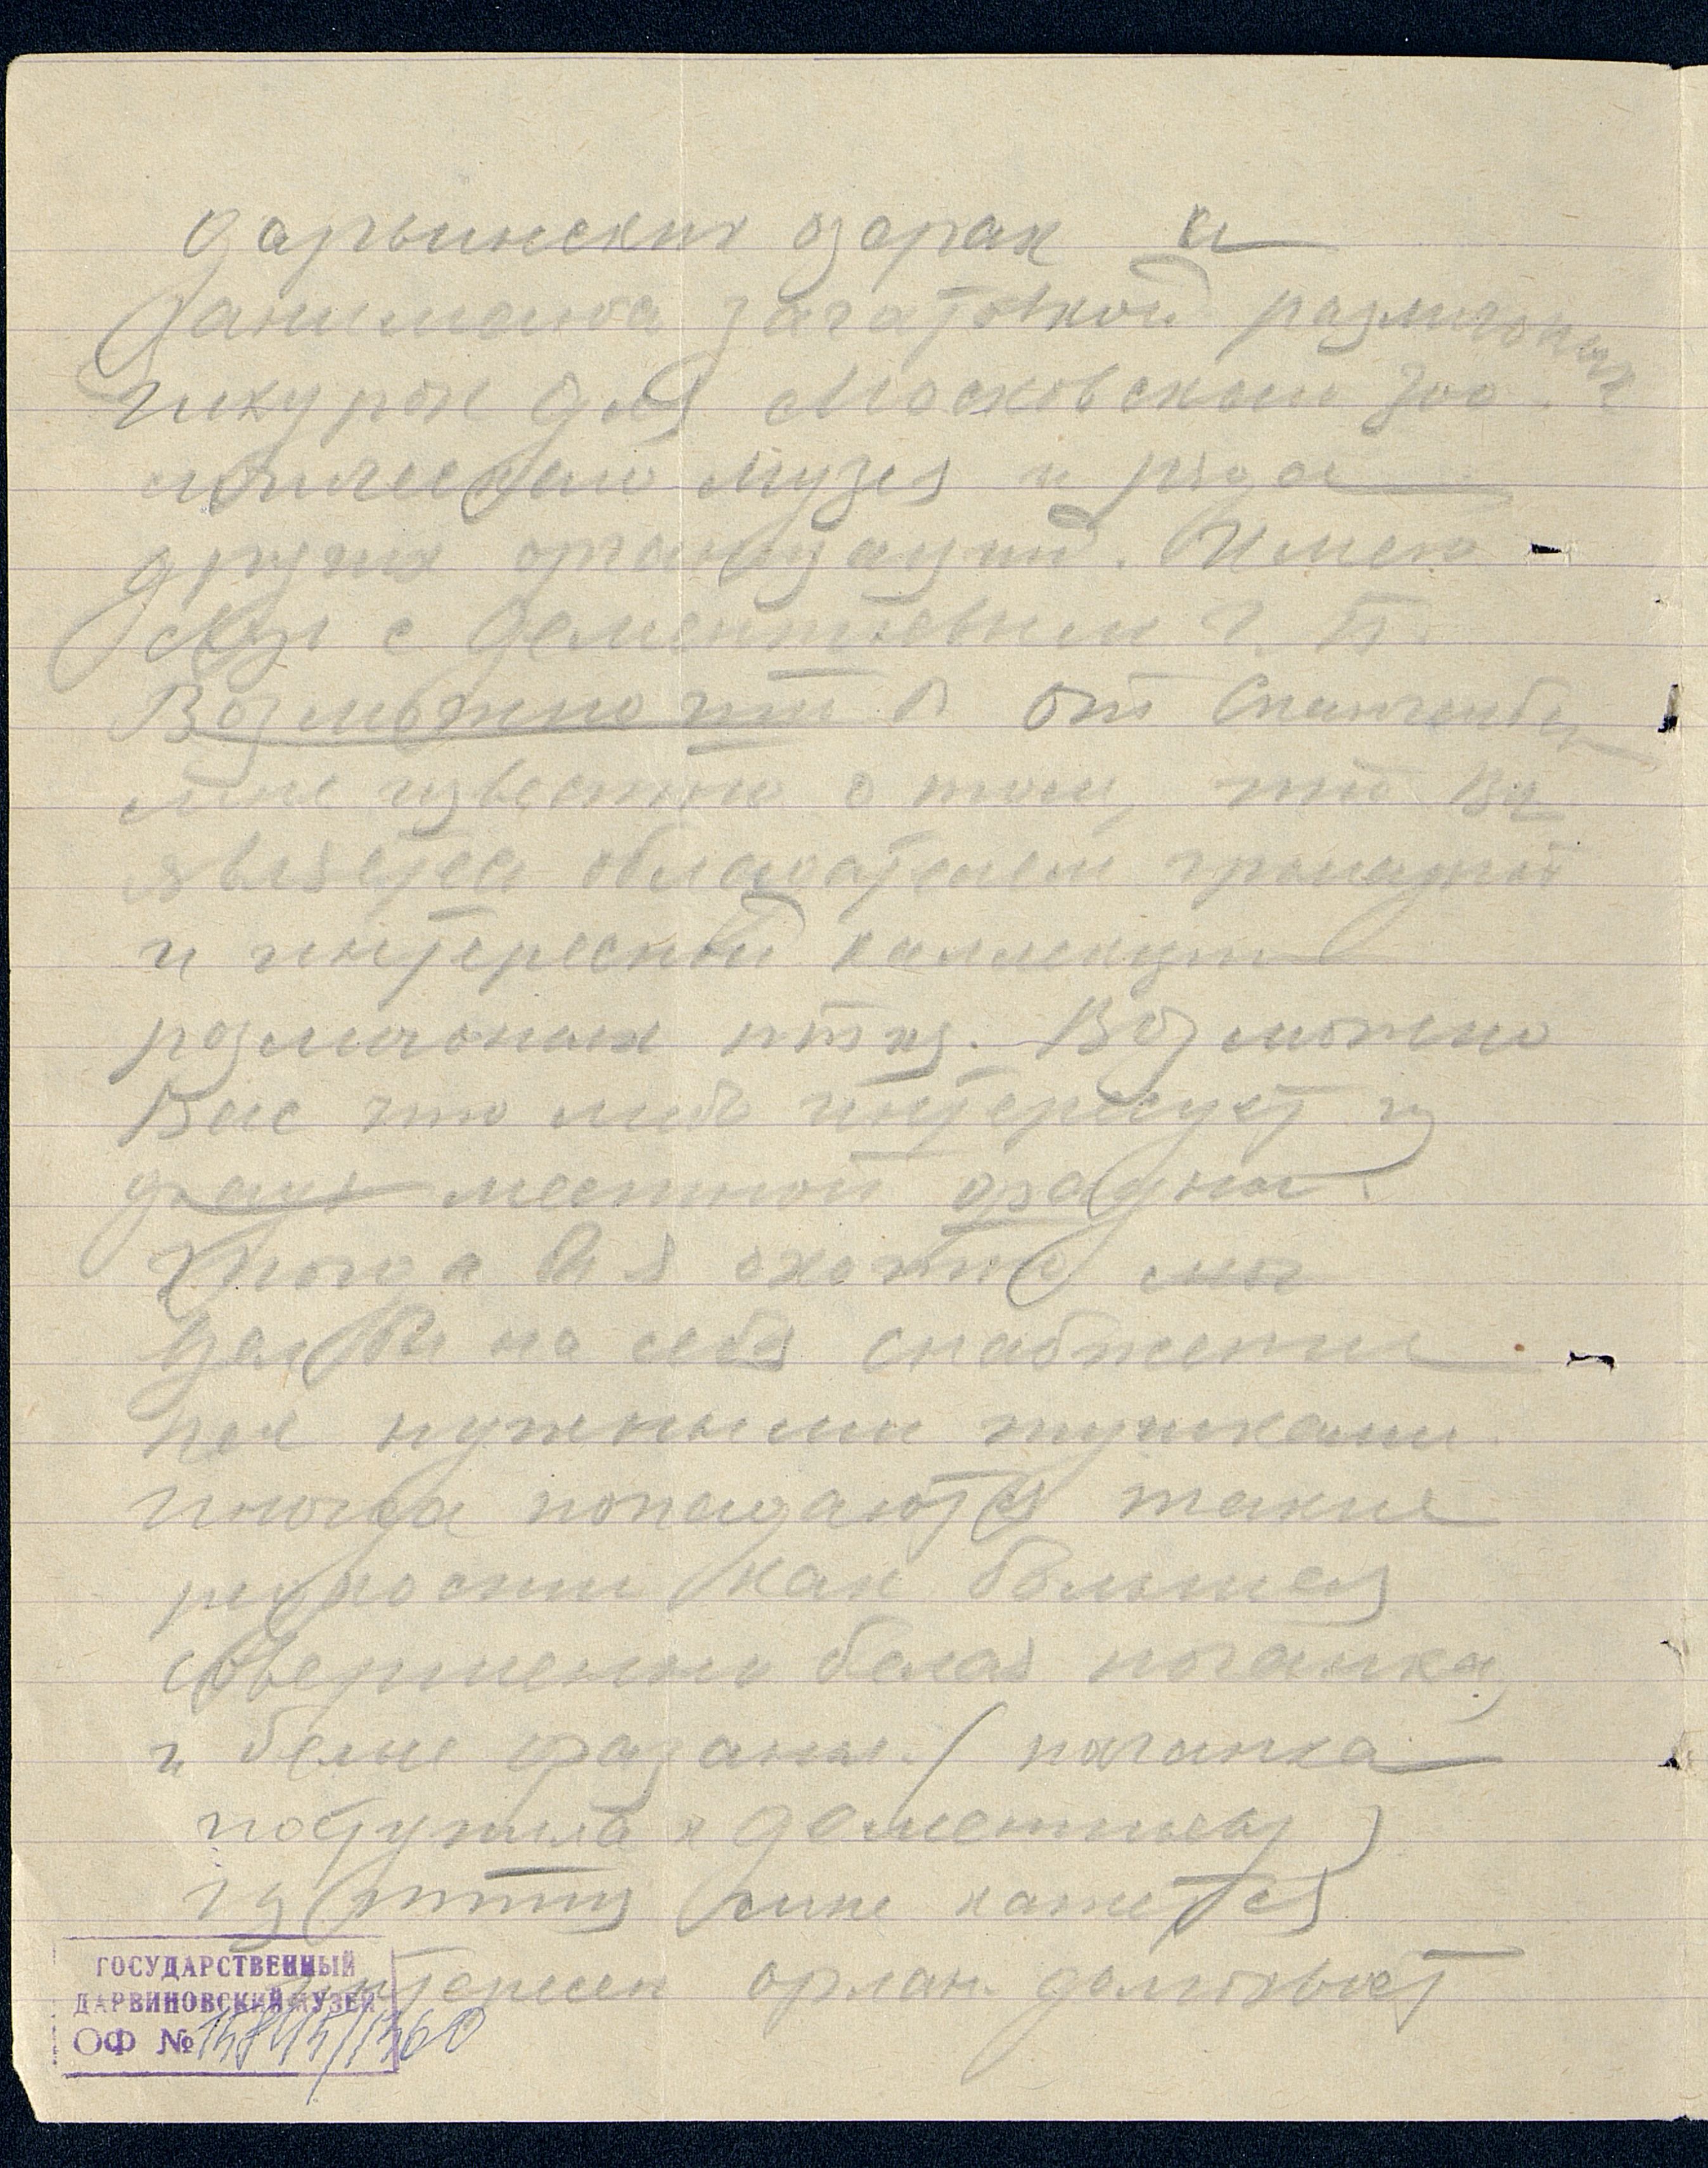 дарьинских озерах и
занимаюсь заготовкой различных
шкурок для Московском Зоо
логическаго музея и ряда
других организаций. Имею
связь с Дементьевым Г. П.
Возможно что В от Спангенбер
мне известно о том, что Вы
являетеся обладателем громадной
и интересной каллекции
различоных птиц. Возможно
Вас что либо интересует из
местной фауны.
тогда бы я охотно мог
взял бы на себя снабжение
нужеными тушками
иногда попадаются такие
редкости как большая
совершенно белая поганка,
и белые фазаны. (поганка
поступила к Дементьеву)
из птиц мне кажется
интересен орлан долгохвост
ГОСУДАРСТВЕННЫЙ
ДАРВИНОВСКИЙ МУЗЕЙ
ОФ №